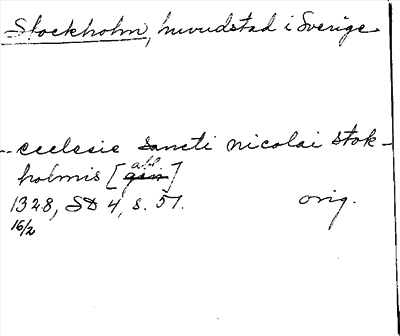 Stockholm, huvudstad i Sverige
-- ecclesie sancti nicolai stok-
holmis [gen abl]
1328, SD 4, s. 51. orig.
16/2